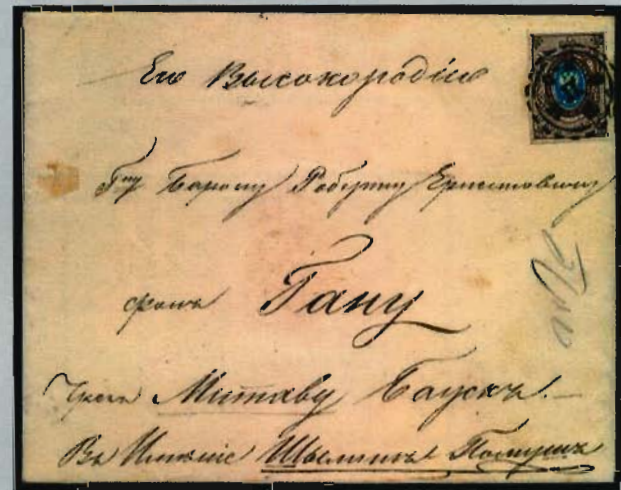 Его Высокородію
Гну Барону Роберту Ернестовичу
фонъ Гану
Чрезъ Митаву Баускъ.
Въ Имѣніе